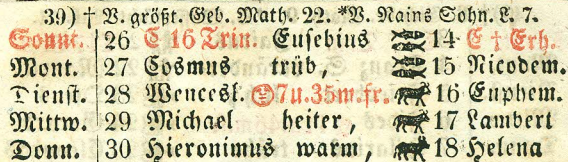 39) † V. größt. Geb. Math. 22. *V. Nains Sohn. L. 7.
Sonnt. 26 C 16 Trin. Eusebius 14 E † Erh.
Mont. 27 Cosmus trüb, 15 Nicodem.
Dienst. 28 Wencesl. 7 u. 35 m. fr. 16 Euphem.
Mittw. 29 Michael heiter, 17 Lambert
Donn. 30 Hieronimus warm, 18 Helena